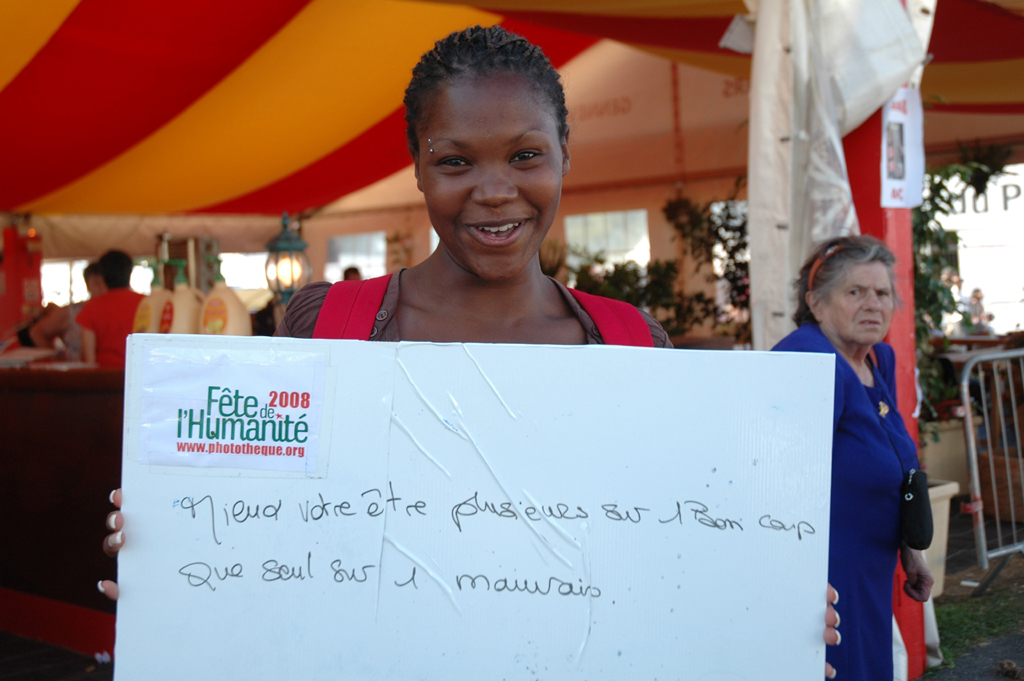 Fête de 2008
l'Humanité
www.phototheque.org
Mieux votre être plusieues sur 1 Bon coup
Que seul sur 1 mauvais